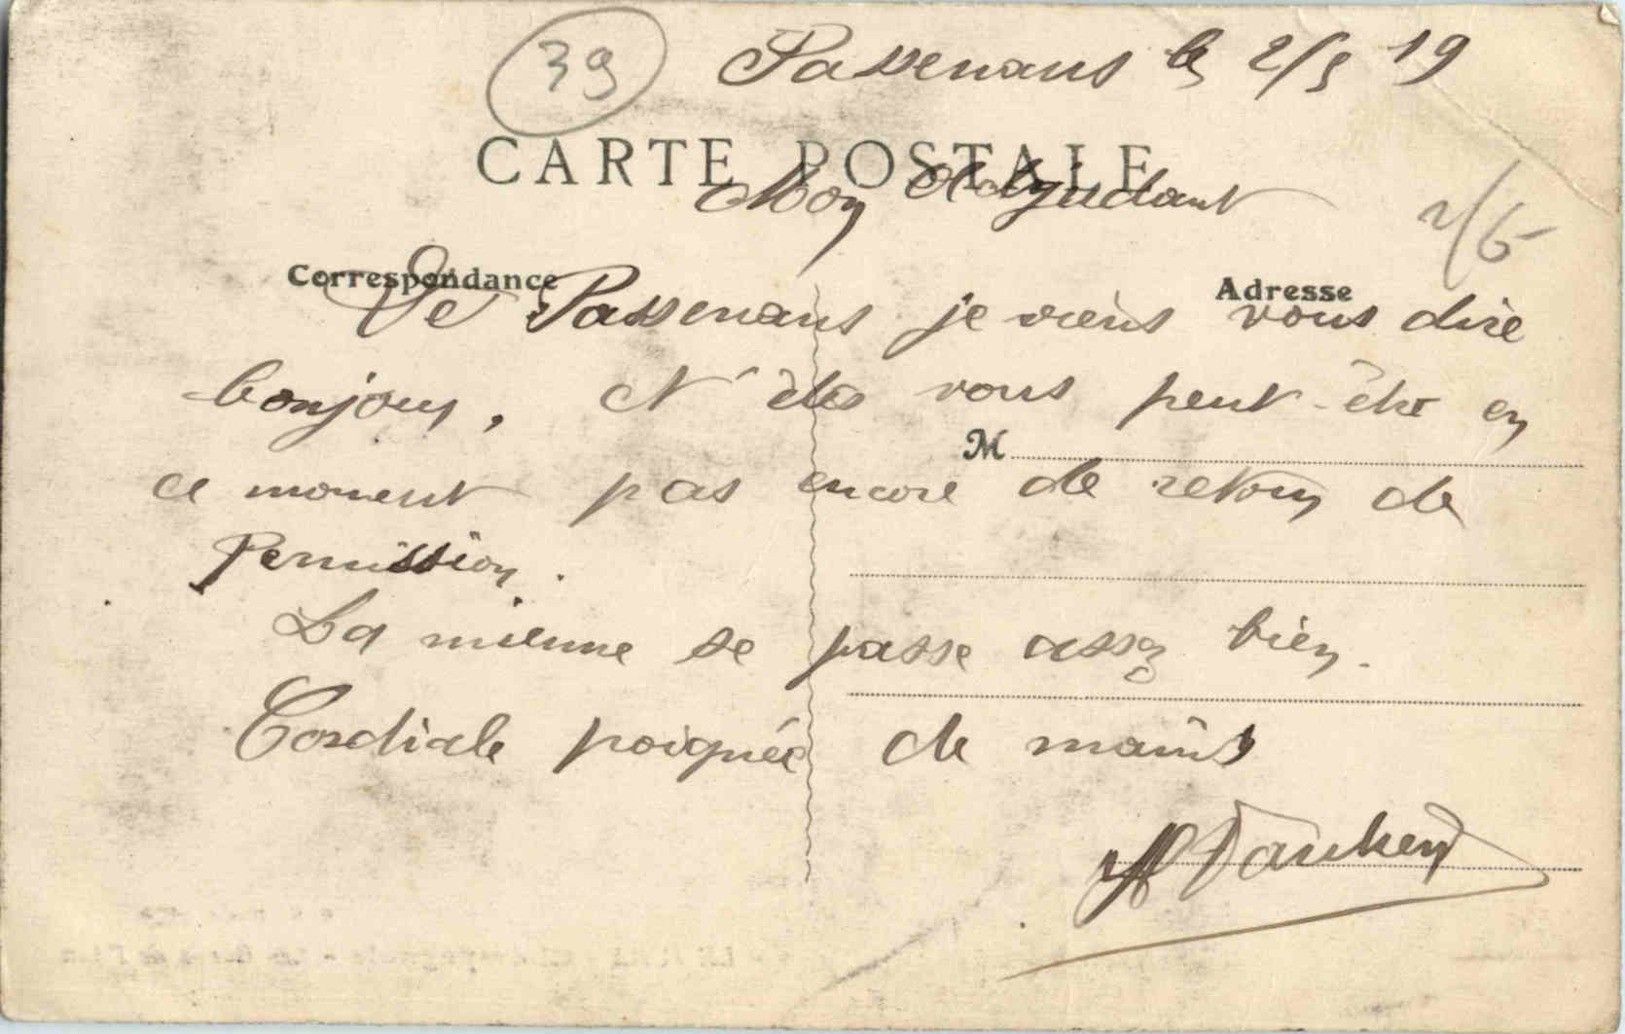 39
Passenans le 2/5 19
CARTE POSTALE
Mon Adjudant
2/6
Correspondance
Adresse
De Passenans je viens vous dire
bonjour, N'êtes vous peut-être en
M
ce moment pas encore de retour de
Permission.
La mienne se passe assez bien.
Cordiale poignée de mains